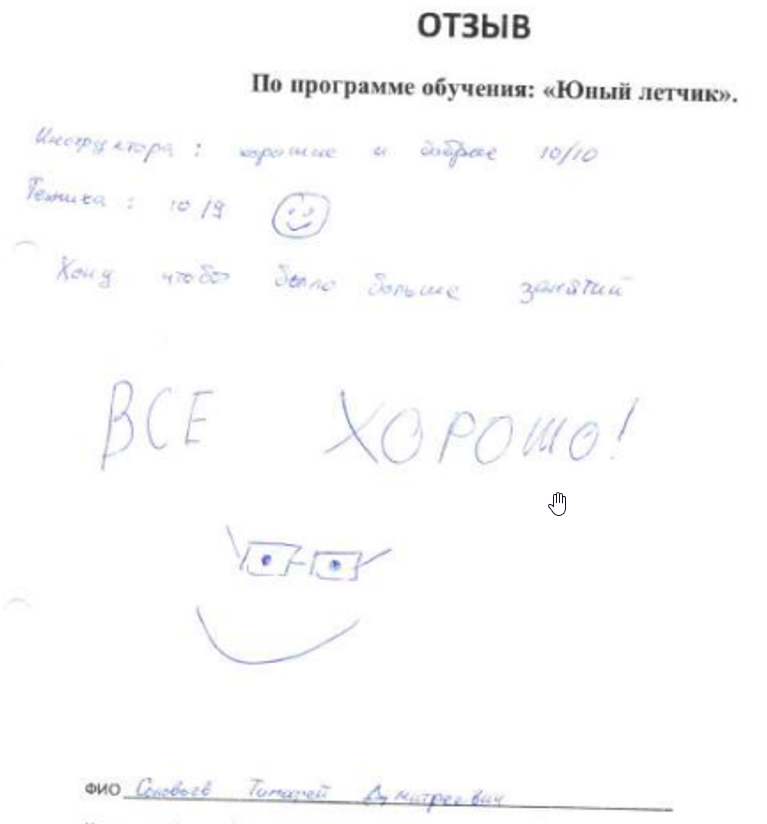 ОТЗЫВ
По программе обучения: «Юный летчик».
Инструктора : хорошие и добрые 10/10
Техника : 10/9
Хочу чтобы было больше занятий
ВСЕ ХОРОШО!
ФИО Соловьев Тимофей Дмитреевич